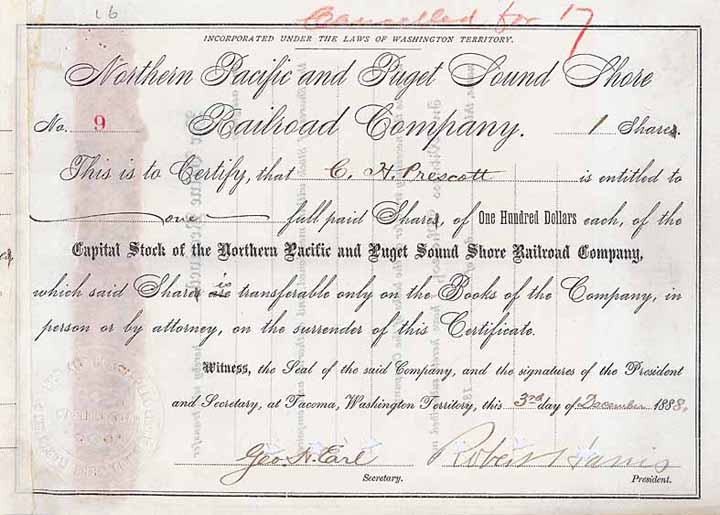 16
Cancelled for 17
INCORPORATED UNDER THE LAWS OF WASHINGTON TERRITORY.
Northern Pacific and Puget Sound Shore
No. 9 Railroad Company. 1 Shares.
This is to Certify, that C. H. Prescott is entitled to
one full paid Shares, of One Hundred Dollars each, of the
Capital Stock of the Northern Pacific and Puget Sound Shore Railroad Company,
which said Shares is transferable only on the Books of the Company, in
person or by attorney, on the surrender of this Certificate.
Witness, the Seal of the said Company, and the signatures of the President
and Secretary, at Tacoma, Washington Territory, this 3rd day of December 1888.
Geo. H. Earl Robert Harris
Secretary. President.